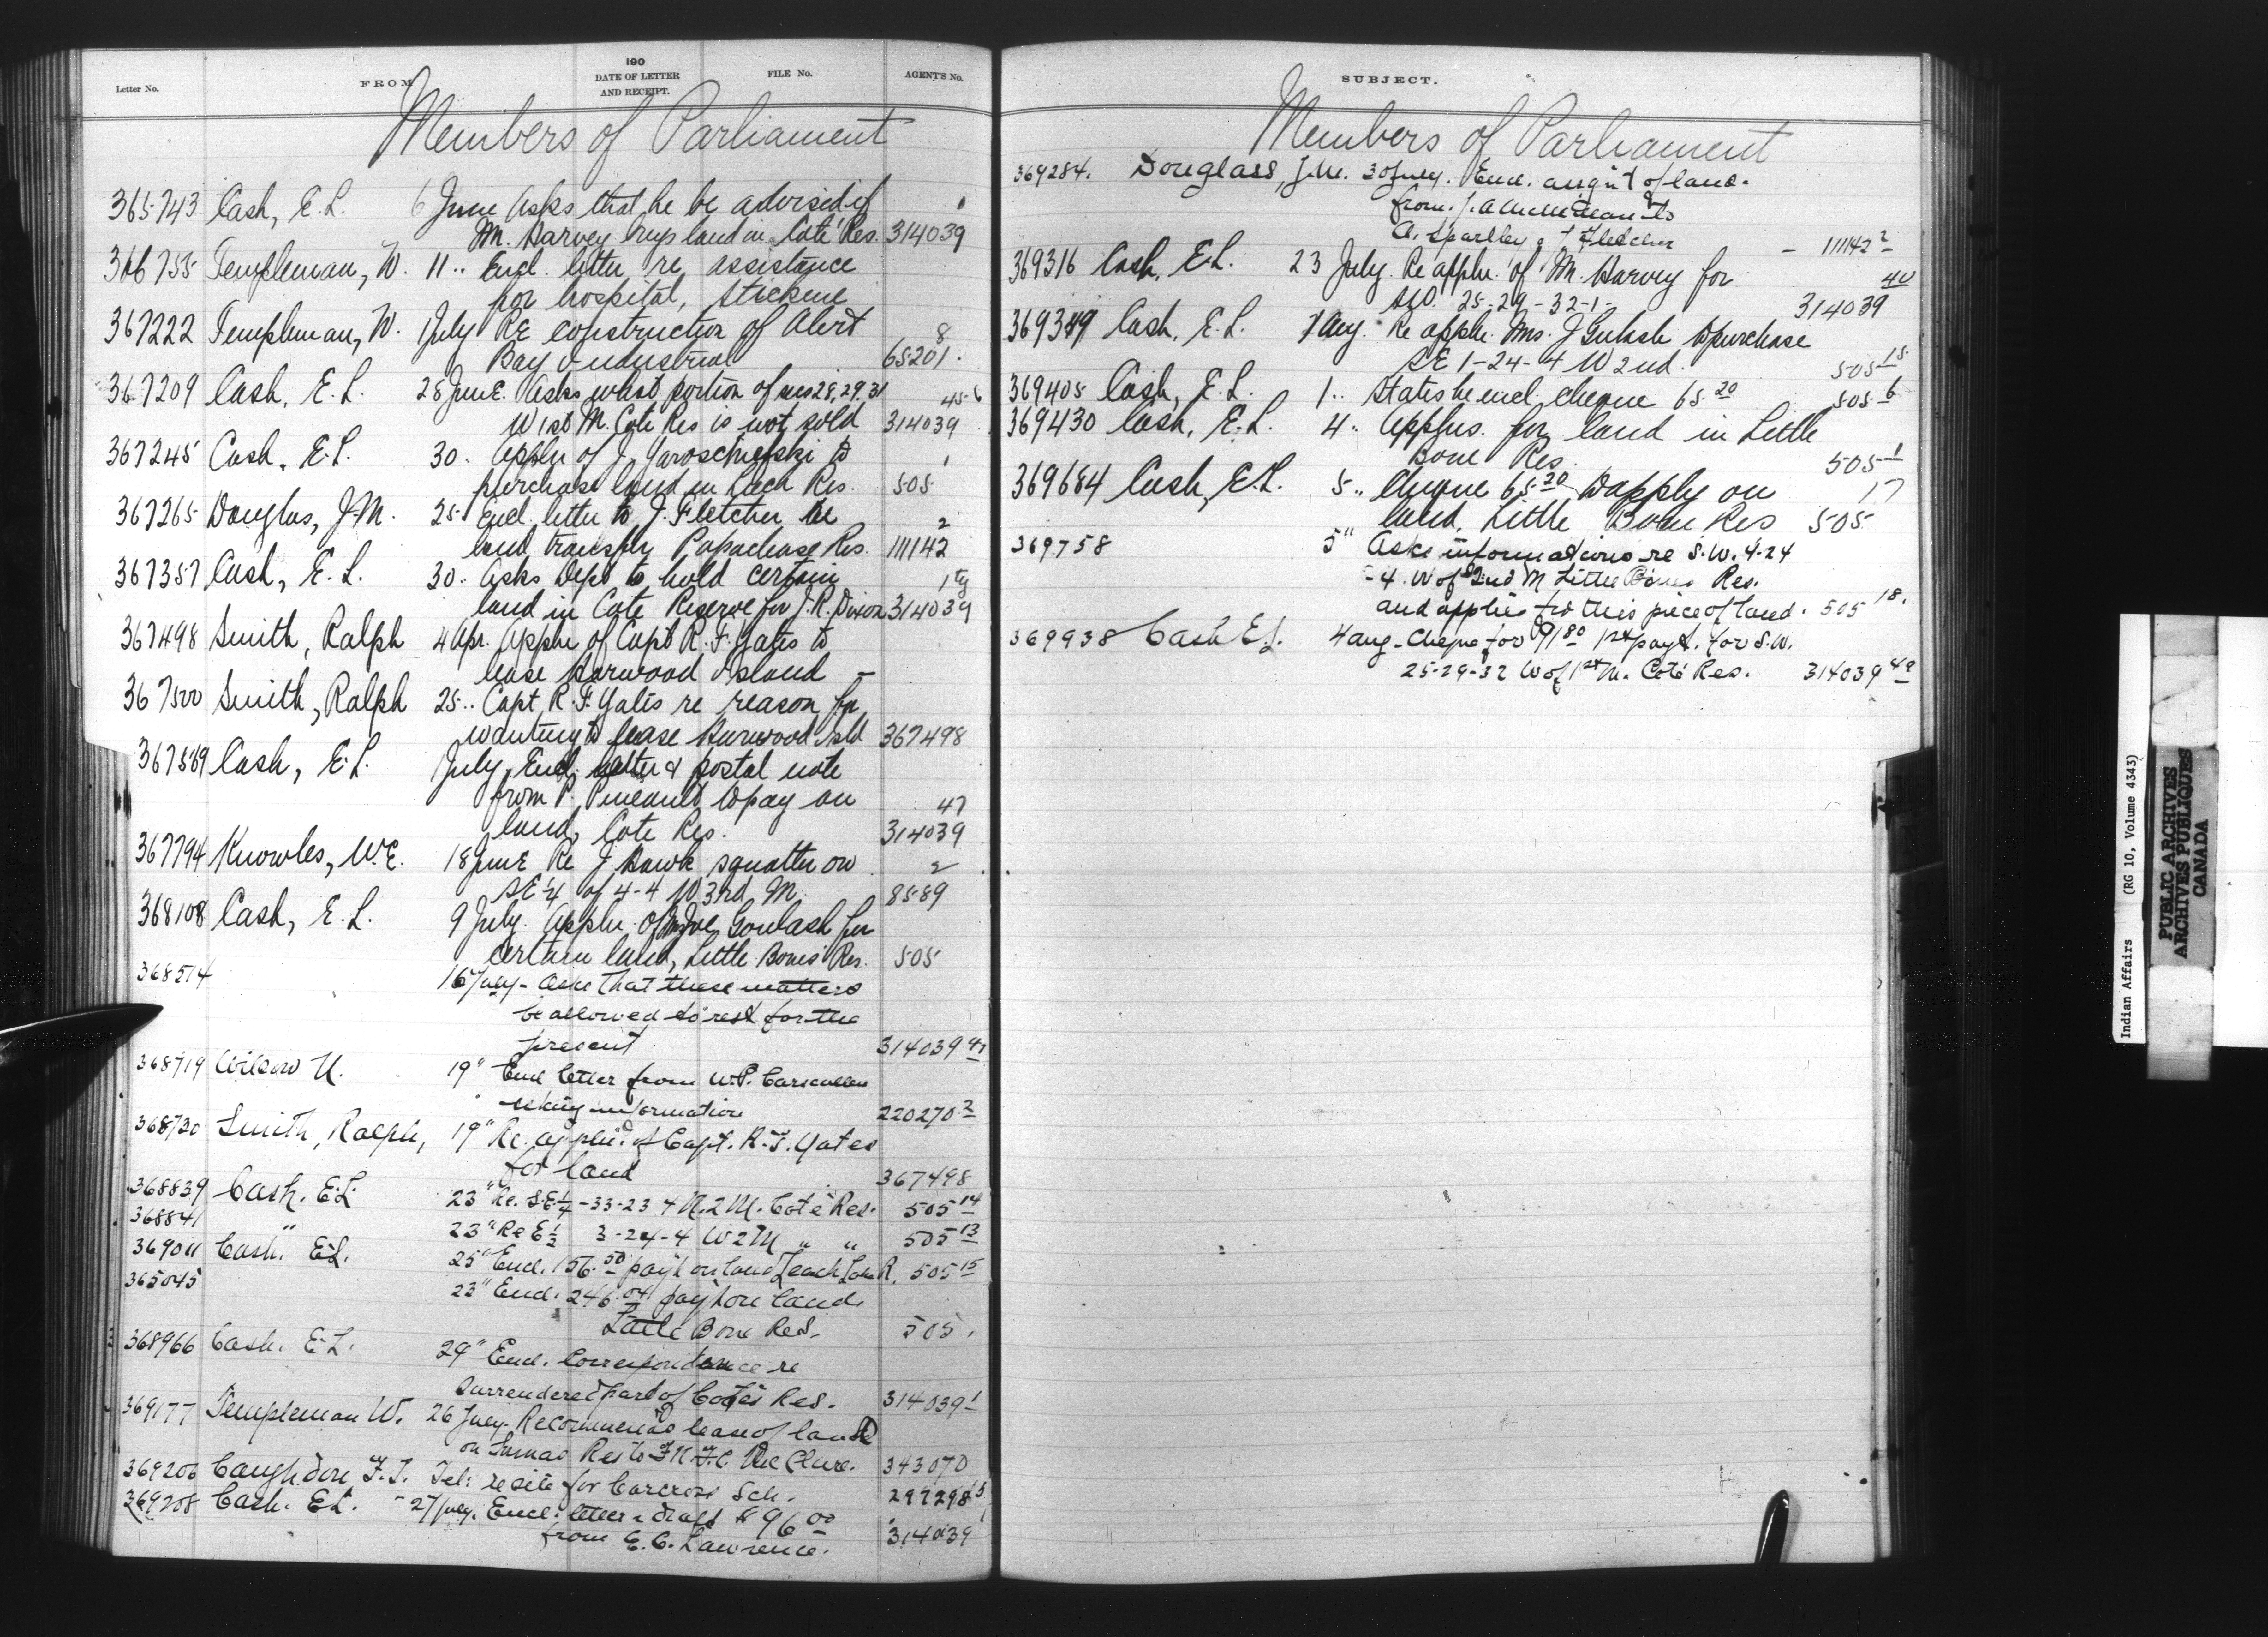 Letter No.
FROM
190
DATE OF LETTER
AND RECEIPT.
FILE No.
AGENT'S No.
Members of Parliament
365743 Cash, E.L. 6 June Asks that he be advised if 1
Mr. Harvey buys land in Coté Res. 314039
366755 Templeman, W. 11 .. Encl. letter re assistance
for hospital, Stickine
367222 Templeman, W. 1 July RE construction of Alert 8
Bay Industrial 65201.
367209 Cash, E.L. 28 June. Asks what portion of secs 28, 29. 31 45-6
W 1st M. Cote Res is not sold 314039
367245 Cash, E.L. 30. Appln of J. Yaroschefski to 1
purchase land in Leech Res. 505
367265 Douglas, J.M. 25. Encl. letter to J. Fletcher re 2
land transfer Papachase Res. 111142
367357 Cash, E.L. 30. Asks Dept to hold certain
land in Cote Reserve for J.R. Dixon 314039
367498 Smith, Ralph 4 Apr. Appln of Capt R. F. Yates to
lease Harwood Island —
367500 Smith, Ralph 25 .. Capt. R. F. Yates re reason for
wanting to lease Harwood Isld 367498
367589 Cash, E.L. July, Encl. letter & postal note
from P. Pineault to pay on 47
land, Cote Res. 314039
367794 Knowles, W.E. 18 June Re J. Hawk squatter on 2
SE¼ of 4-4 W 3rd M. 8589
368108 Cash, E.L. 9 July. Appln. of Joe Goulash for
certain land, Little Bones Res. 505
368514 16 July - Asks that these matters
be allowed to rest for the
present 314039
368719 Wilson U. 19" Encl letter from W.P. Carscallen
asking information 220270 2
368730 Smith, Ralph, 19" Re. appln. of Capt. R. F. Yates
for land 367498
368839 Cash. E.L. 23" Re. S.E¼-33-23 4 W. 2 M. Coté Res. 505 14
368841 " 23" Re E½ 3-24-4 W 2 M " " 505 13
369011 Cash. E.L. 25" Encl. 156.50 pay't on land Leech Lake R. 505 15
365045 23" Encl. 246.04 pay't on land.
Little Bone Res. 505.
368966 Cash. E.L. 29" Encl. Correspondence re
surrendered part of Cote's Res. 314039 1
369177 Templeman W. 26 July. Recommends lease of land
on Sumas Res to 343070
369206 Congdon F.T. Tel: re site for Carcross Sch. 297298 5
369208 Cash. E.L. - 27 July. Encl: letter & draft $96.00
from E.C. Lawrence. 314039
SUBJECT.
Members of Parliament
369284. Douglass, J.M. 30 July. Encl. assgn't of land.
from J. A. to
A. & J Fletcher — 111142 2
369316 Cash, E.L. 23 July. Re appln. of M. Harvey for 40
25-29-32-1- 314039
Cash, E.L. 1 Aug. Re appln. Mrs. J Gulash to purchase
SE 1-24-4 W 2nd. 505 15
369405 Cash, E.L. 1 .. States he encl. cheque 65.20 505 6
369430 Cash, E.L. 4 .. Applns. for land in Little
Bone Res. 505 1
369684 Cash, E.L. 5 .. Cheque 65.20 to apply on 17
land. Little Bone Res 505
369758 5" Asks informations re S.W. 4-24
-4. W of 2nd M Little Bones Res.
and applies for this piece of land. 505 18.
369938 Cash E.L. 4 Aug - Cheque for 91.80 1st payt. for S.W.
25-29-32 W of 1st M. Coté Res. 314039 49
Indian Affairs (RG 10, Volume 4343)
PUBLIC ARCHIVES
ARCHIVES PUBLIQUES
CANADA